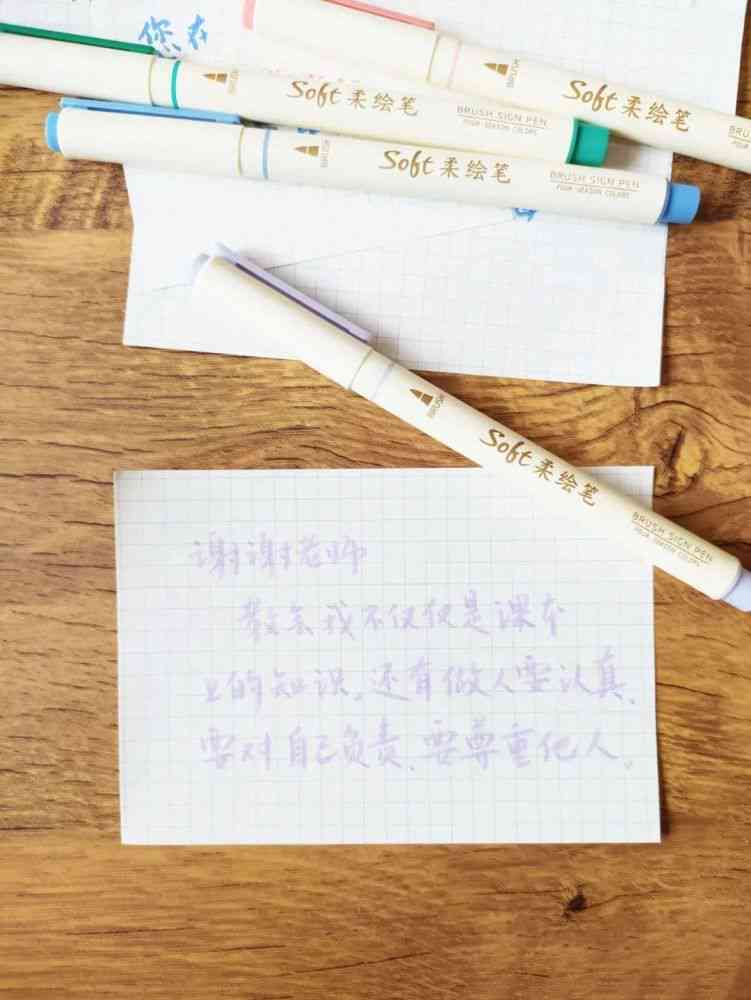 您在
BRUSH
Soft 柔绘笔
BRUSH
BRUSH
Soft 柔绘笔
BRUSH SIGN PEN
FOUR-SEASON COLORS
BRUSH
Soft 柔绘笔
BRUSH SIGN PEN
FOUR-SEASON COLORS
BRUSH
Soft 柔绘笔
BRUSH SIGN PEN
FOUR-SEASON COLORS
谢谢老师
教会我不仅仅是课本
上的知识。还有做人要认真、
要对自己负责、要尊重他人。